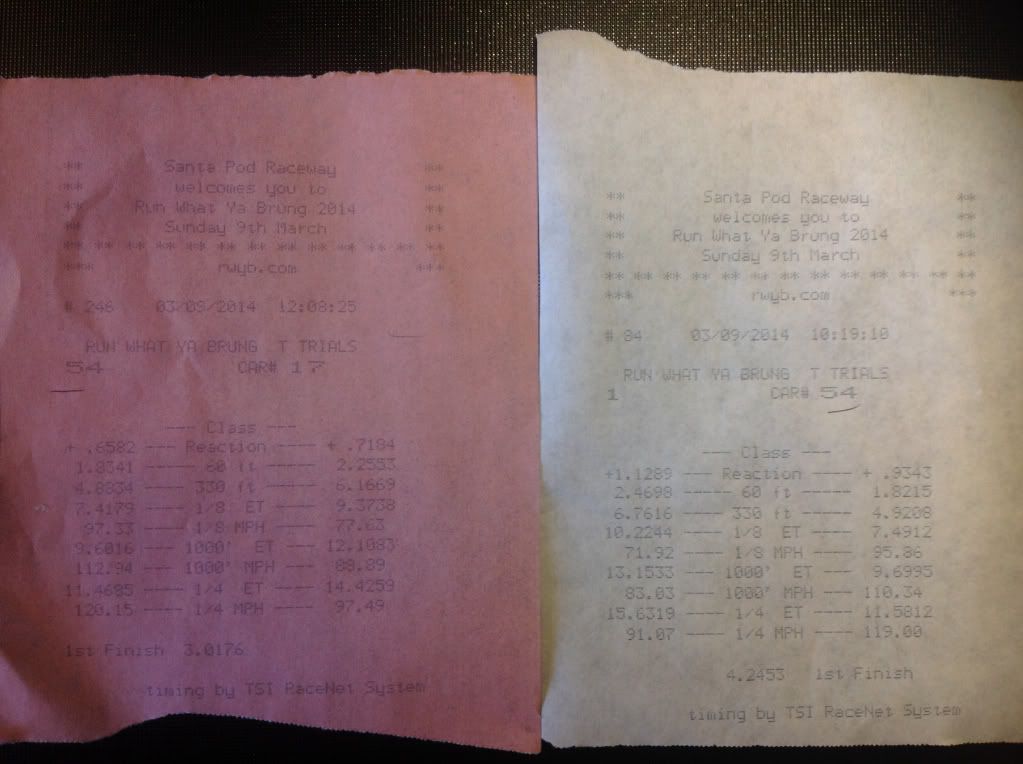 ** Santa Pod Raceway **
** welcomes you to **
** Run What Ya Brung 2014 **
** Sunday 9th March **
** ** ** ** ** ** ** ** ** ** ** ** **
*** rwyb.com ***
# 246 03/09/2014 12:08:25
RUN WHAT YA BRUNG T TRIALS
54 CAR# 17
--- Class ---
+ .6582 --- Reaction ---- + .7184
1.8341 ---- 60 ft ----- 2.2553
4.8834 ---- 330 ft ---- 6.1669
7.4179 ---- 1/8 ET --- 9.3738
97.33 ---- 1/8 MPH ---- 77.63
9.6016 --- 1000' ET --- 12.1083
112.94 --- 1000' MPH --- 88.89
11.4685 ---- 1/4 ET --- 14.4259
120.15 ---- 1/4 MPH ---- 97.49
1st Finish 3.0176
timing by TSI RaceNet System
** Santa Pod Raceway **
** welcomes you to **
** Run What Ya Brung 2014 **
** Sunday 9th March **
** ** ** ** ** ** ** ** ** ** ** ** **
*** rwyb.com ***
# 84 03/09/2014 10:19:10
RUN WHAT YA BRUNG T TRIALS
1 CAR# 54
--- Class ---
+1.1289 --- Reaction ---- + .9343
2.4698 ----- 60 ft ----- 1.8215
6.7616 ---- 330 ft ---- 4.9208
10.2244 ---- 1/8 ET ---- 7.4912
71.92 ---- 1/8 MPH ---- 95.86
13.1533 --- 1000' ET --- 9.6995
83.03 --- 1000' MPH --- 110.34
15.6319 ---- 1/4 ET --- 11.5812
91.07 ---- 1/4 MPH ---- 119.00
4.2453 1st Finish
timing by TSI RaceNet System